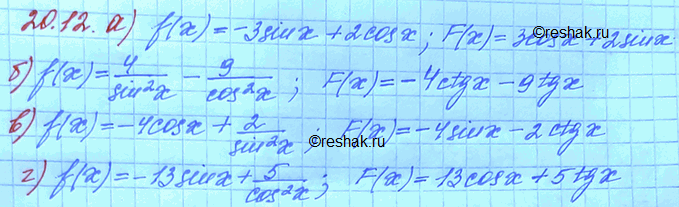 20.12. а) f(x)=-3sinx+2cosx; F(x)=3cosx+2sinx.
б) f(x)=4/sin²x - 9/cos²x; F(x)=-4ctgx-9tgx
©reshak.ru
в) f(x)=-4cosx+2/sin²x; F(x)=-4sinx-2ctgx
©reshak.ru
г) f(x)=-13sinx+5/cos²x; F(x)=13cosx+5tgx